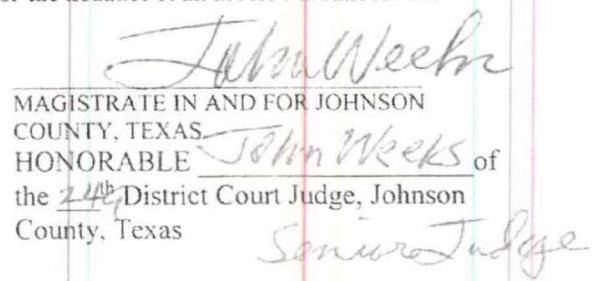 the issuance of an
John Weeks
MAGISTRATE IN AND FOR JOHNSON
COUNTY, TEXAS
HONORABLE John Weeks of
the 249th District Court Judge, Johnson
County, Texas
Senior Judge